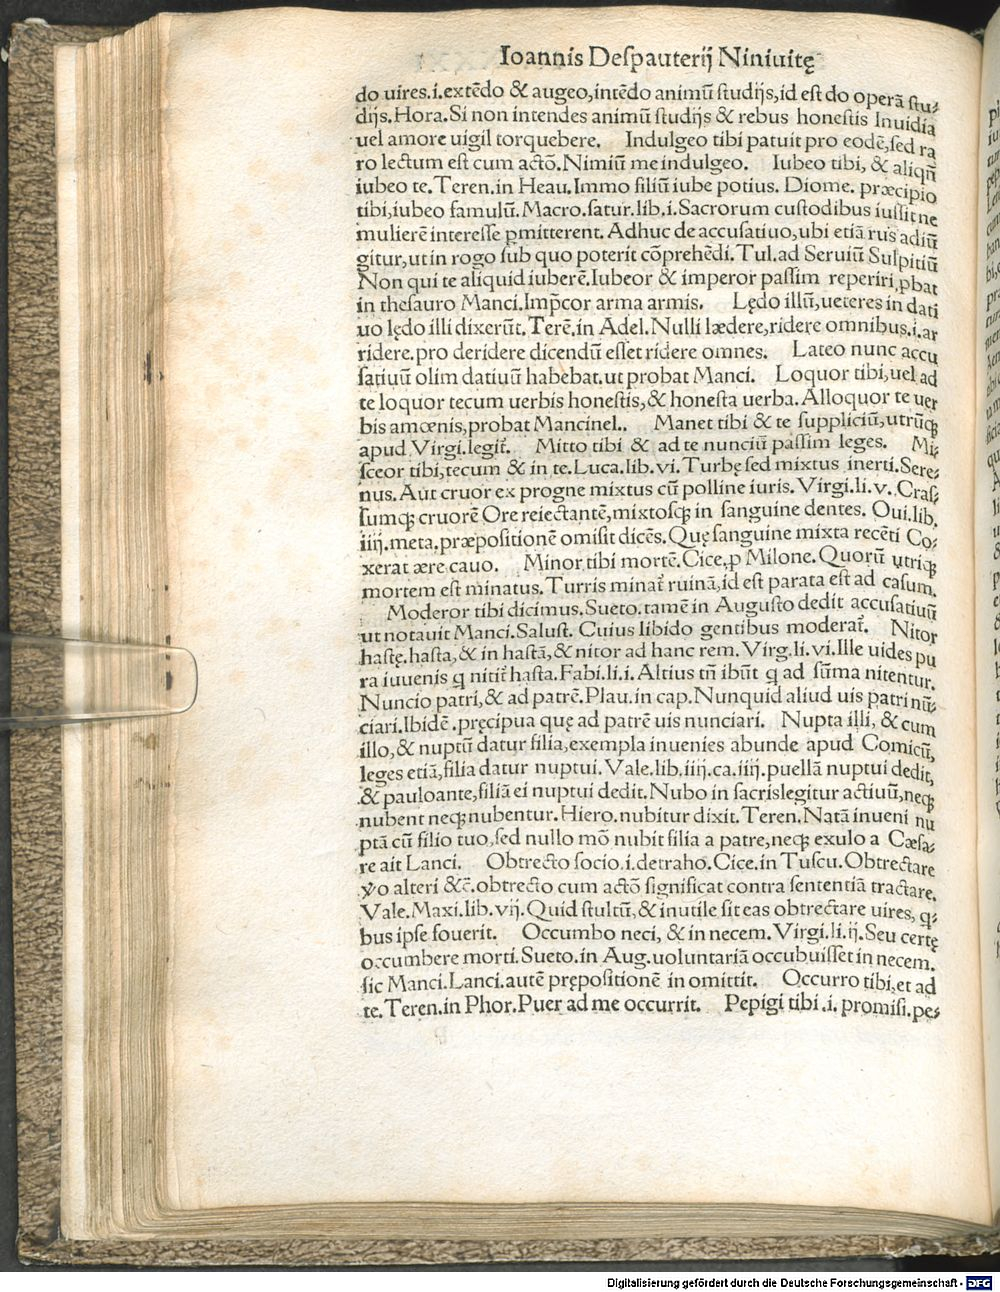 Ioannis Deſpauterij Niniuitę
do uires.i.extēdo & augeo,intēdo animū ſtudijs,id eſt do operā ſtu⸗
dijs.Hora.Si non intendes animū ſtudijs & rebus honeſtis Inuidia
uel amore uigil torquebere. Indulgeo tibi patuit pro eodē,ſed ra
ro lectum eſt cum actō.Nimiū me indulgeo. Iubeo tibi, & aliqn̄
iubeo te.Teren.in Heau.Immo filiū iube potius. Diome. præcipio
tibi,iubeo famulū.Macro.ſatur.lib.i.Sacrorum cuſtodibus iuſſit ne
mulierē intereſſe ꝑmitterent.Adhuc de accuſatiuo,ubi etiā rus adiū
gitur,ut in rogo ſub quo poterit cōprehēdi.Tul.ad Seruiū Sulpitiū
Non qui te aliquid iuberē.Iubeor & imperor paſſim reperiri,ꝓbat
in theſauro Manci.Imp̄cor arma armis. Lędo illū,ueteres in dati
uo lędo illi dixerūt.Terē.in Adel.Nulli lædere,ridere omnibus.i.ar
ridere.pro deridere dicendū eſſet ridere omnes. Lateo nunc accu
ſatiuū olim datiuū habebat.ut probat Manci. Loquor tibi,uel ad
te loquor tecum uerbis honeſtis,& honeſta uerba.Alloquor te uer
bis amœnis,probat Mancinel.. Manet tibi & te ſuppliciū,utrūqꝫ
apud Virgi.legit̄. Mitto tibi & ad te nunciū paſſim leges. Mi⸗
ſceor tibi,tecum & in te.Luca.lib.vi.Turbę ſed mixtus inerti.Sere⸗
nus.Aut cruor ex progne mixtus cū polline iuris.Virgi.li.v.Craſ⸗
ſumqꝫ cruorē Ore reiectantē,mixtoſqꝫ in ſanguine dentes. Oui.lib.
iiij.meta.præpoſitionē omiſit dicēs.Quę ſanguine mixta recēti Co⸗
xerat ære cauo. Minor tibi mortē.Cice.ꝓ Milone.Quorū utriqꝫ
mortem eſt minatus.Turris minat̄ ruinā,id eſt parata eſt ad caſum.
Moderor tibi dicimus.Sueto.tamē in Auguſto dedit accuſatiuū
ut notauit Manci.Saluſt. Cuius libido gentibus moderat̄. Nitor
haſtę.haſta,& in haſtā,& nitor ad hanc rem.Virg.li.vi.Ille uides pu
ra iuuenis q̄ nitit̄ haſta.Fabi.li.i.Altius tn̄ ibūt q̄ ad ſūma nitentur.
Nuncio patri,& ad patrē.Plau.in cap.Nunquid aliud uis patri nū⸗
ciari.Ibidē.pręcipua quę ad patrē uis nunciari. Nupta illi, & cum
illo,& nuptū datur filia,exempla inuenies abunde apud Comicū,
leges etiā,filia datur nuptui.Vale.lib.iiij.ca.iiij.puellā nuptui dedit,
& pauloante,filiā ei nuptui dedit.Nubo in ſacrislegitur actiuū,neqꝫ
nubent neqꝫ nubentur.Hiero.nubitur dixit.Teren.Natā inueni nu
ptā cū filio tuo,ſed nullo mō nubit filia a patre,neqꝫ exulo a Cæſa⸗
re ait Lanci. Obtrecto ſocio.i.detraho.Cice.in Tuſcu.Obtrectare
ꝟo alteri &c̄.obtrecto cum actō ſignificat contra ſententiā tractare.
Vale.Maxi.lib.vij.Quid ſtultū,& inutile ſit eas obtrectare uires, q⸗
bus ipſe fouerit. Occumbo neci, & in necem.Virgi.li.ij.Seu certę
occumbere morti.Sueto.in Aug.uoluntariā occubuiſſet in necem.
ſic Manci.Lanci.autē prępoſitionē in omittit. Occurro tibi,et ad
te.Teren.in Phor.Puer ad me occurrit. Pepigi tibi.i.promiſi.pe⸗
Digitalisierung gefördert durch die Deutsche Forschungsgemeinschaft - DFG